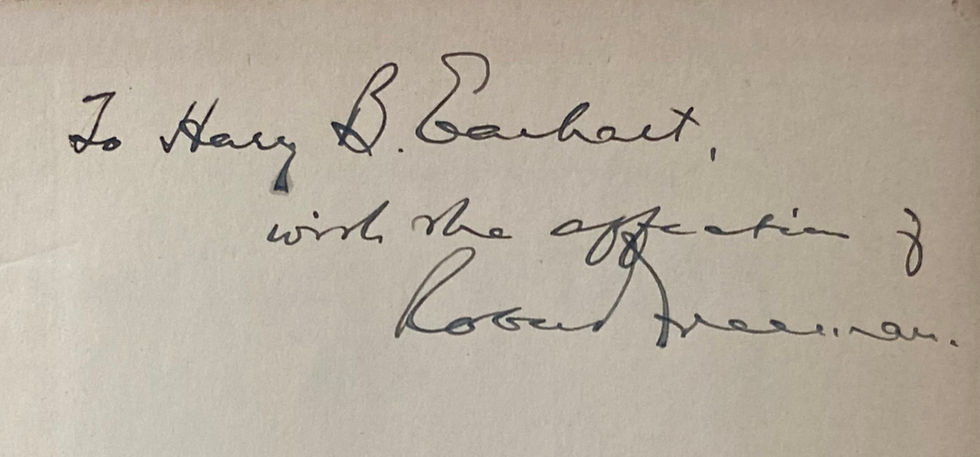 To Harry B. Earhart,
with the affection of
Robert Freeman.